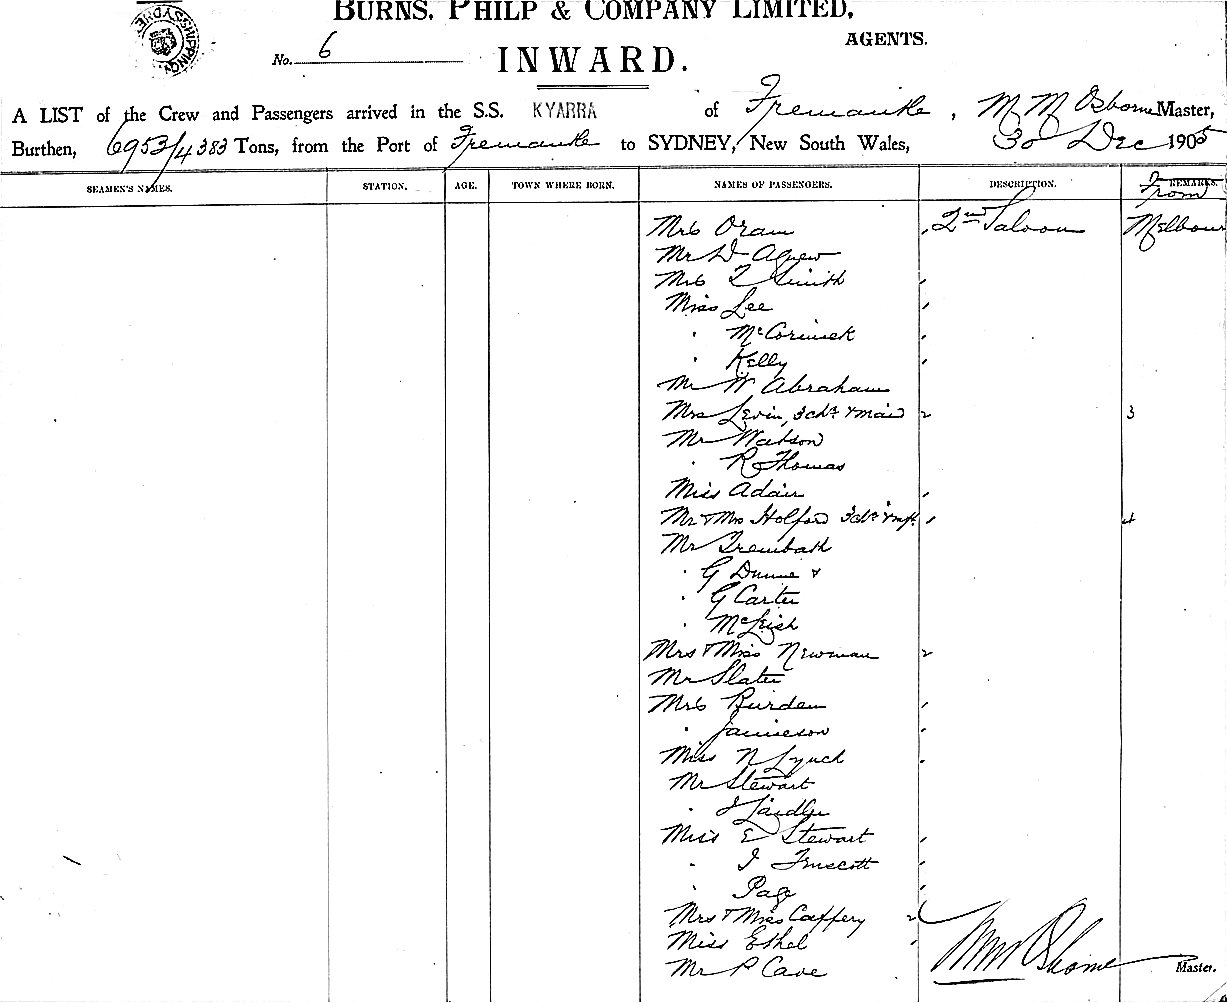 BURNS, PHILP & COMPANY LIMITED,
AGENTS.
No. 6
INWARD.
A LIST of the Crew and Passengers arrived in the S.S. KYARRA of Fremantle, M M Osborne Master,
Burthen, 6953/4383 Tons, from the Port of Fremantle to SYDNEY, New South Wales, 30 Dec 1905
SEAMEN'S NAMES. STATION. AGE. TOWN WHERE BORN. NAMES OF PASSENGERS. DESCRIPTION. REMARKS.
From
Mrs Oram 2nd Saloon Melbour
Mr D Agnew
Mrs T Smith
Miss Lee
" McCormick
" Kelly
Mr W Abraham
Mrs Levin, 3 chn & maid 2 3
Mr Watson
" R Thomas
Miss Adair
Mr & Mrs Holford 3 chn & inft 1 4
Mr Trembath
" G Dunne &
" G Carter
" McLeish
Mrs & Miss Newman 2
Mr Slater
Mrs Burden
" Jamieson
Miss N Lynch
Mr Stewart
" J Laidler
Miss E Stewart
" I Truscott
" Page
Mrs & Miss Caffery 2
Miss Ethel
Mr P Cave
MM Osborne Master.